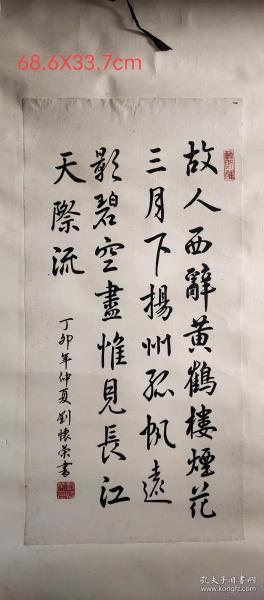 68.6X33.7cm
故人西辭黃鶴樓煙花
三月下揚州孤帆遠
影碧空盡惟見長江
天際流
丁卯年仲夏劉懷榮書
孔夫子旧书网